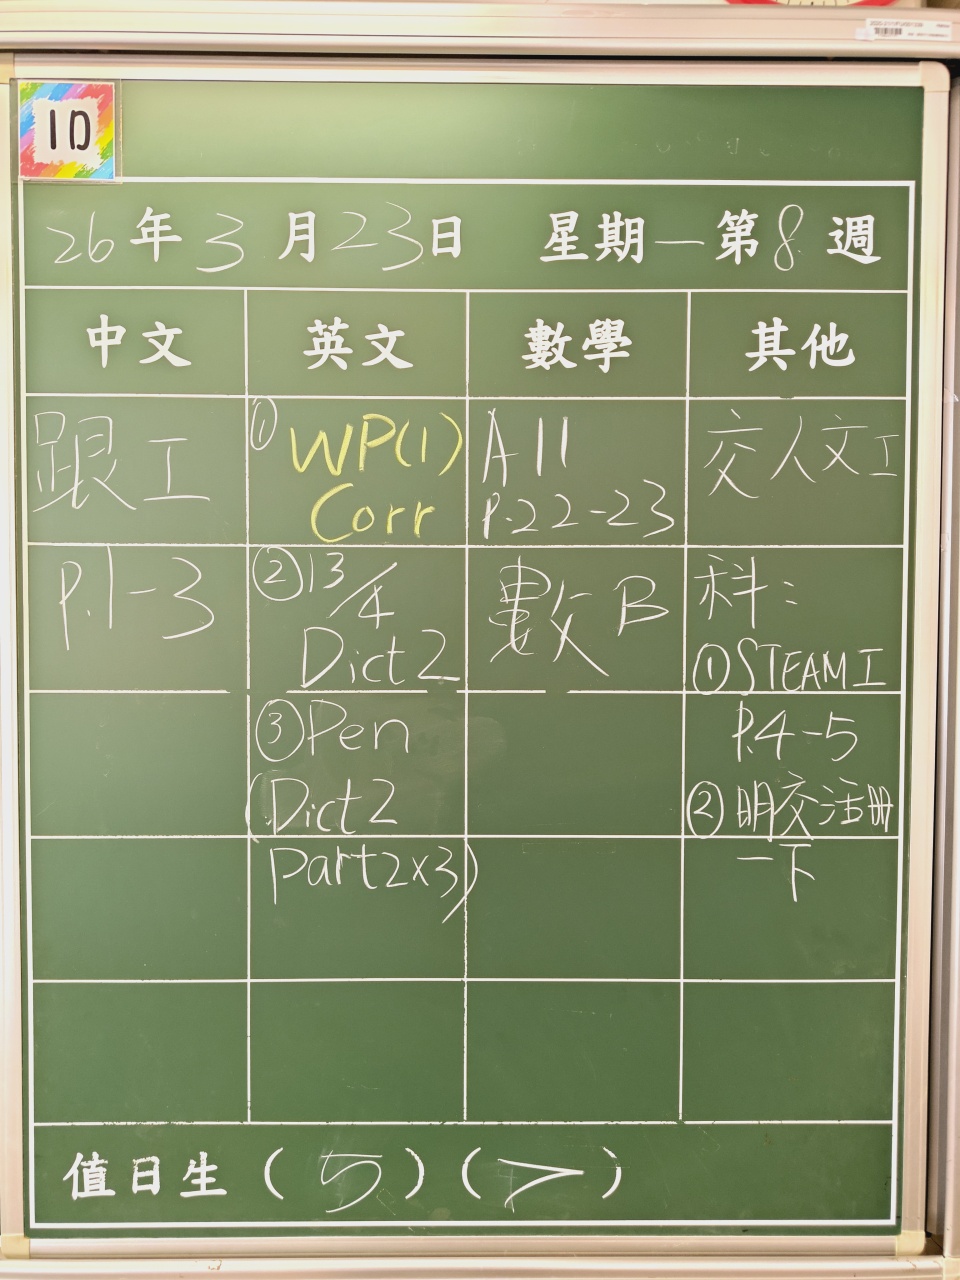 1D
26年3月23日 星期一第8週
中文 英文 數學 其他
跟工
P.1-3
① WP(1)
Corr
② 13/4
Dict 2
③ Pen
(Dict 2
Part 2x3)
A11
P.22-23
數B
交人文工
科:
① STEAM工
P.4-5
② 明交活冊
一下
值日生(5)(7)